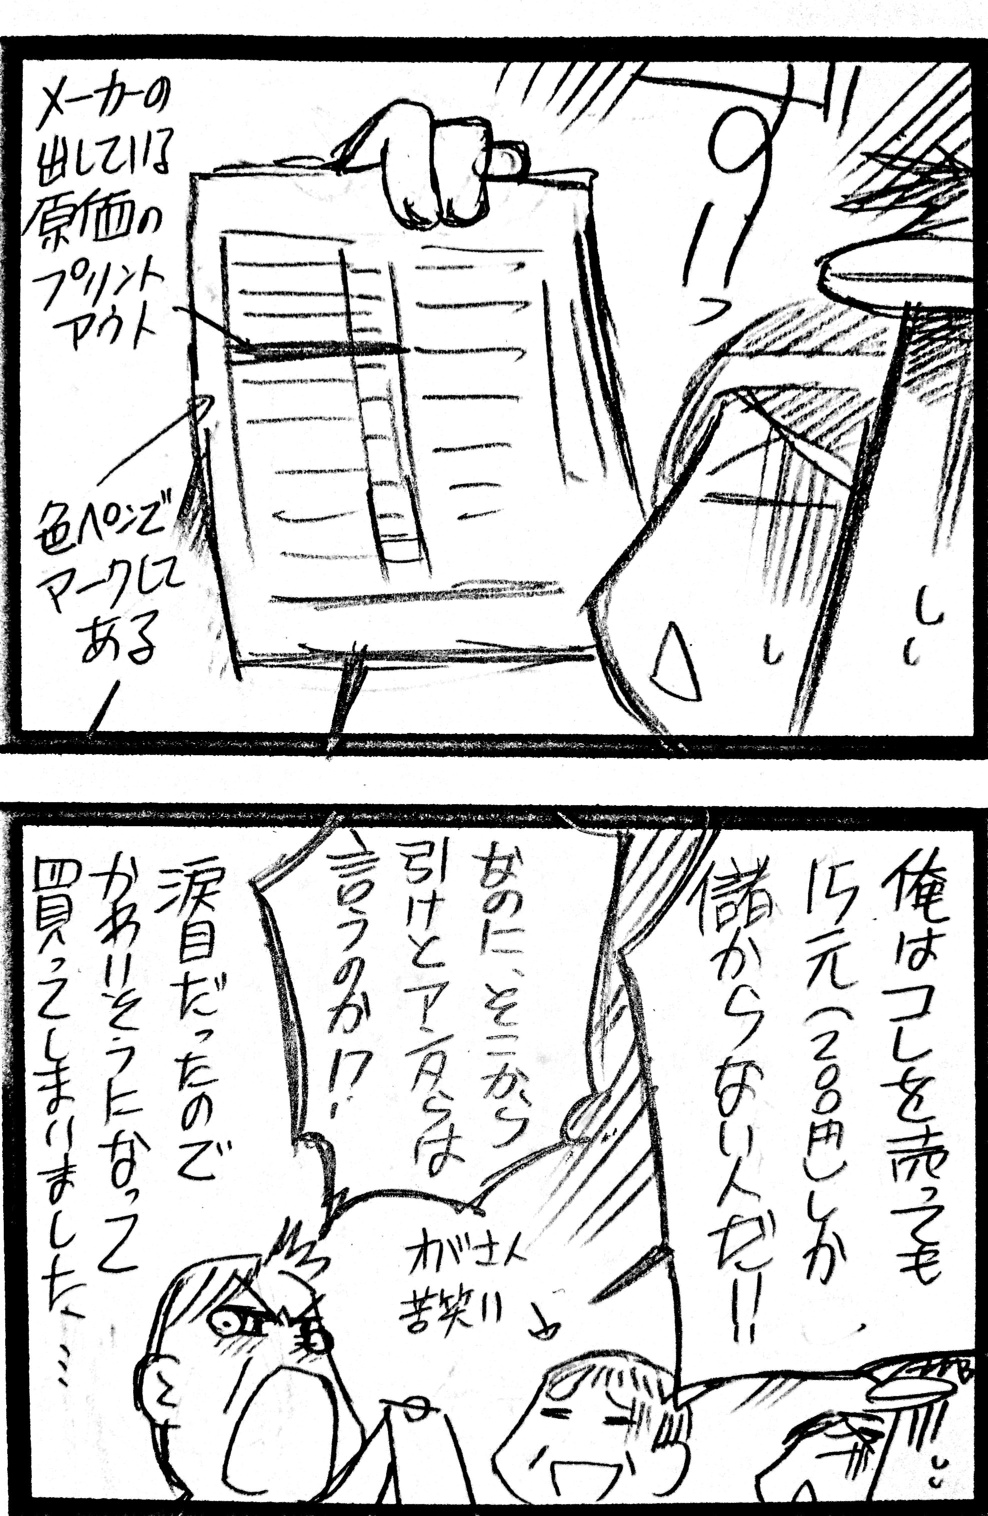 メーカーの
出している
原価の
プリント
アウト
色ペンで
マークして
ある
俺はコレを売っても
15元(200円)しか
儲からない人だ!!
なのに、そこから
引けとアンタらは
言うのか!?
オバさん
苦笑い
涙目だったので
かわいそうになって
買ってしまいました…